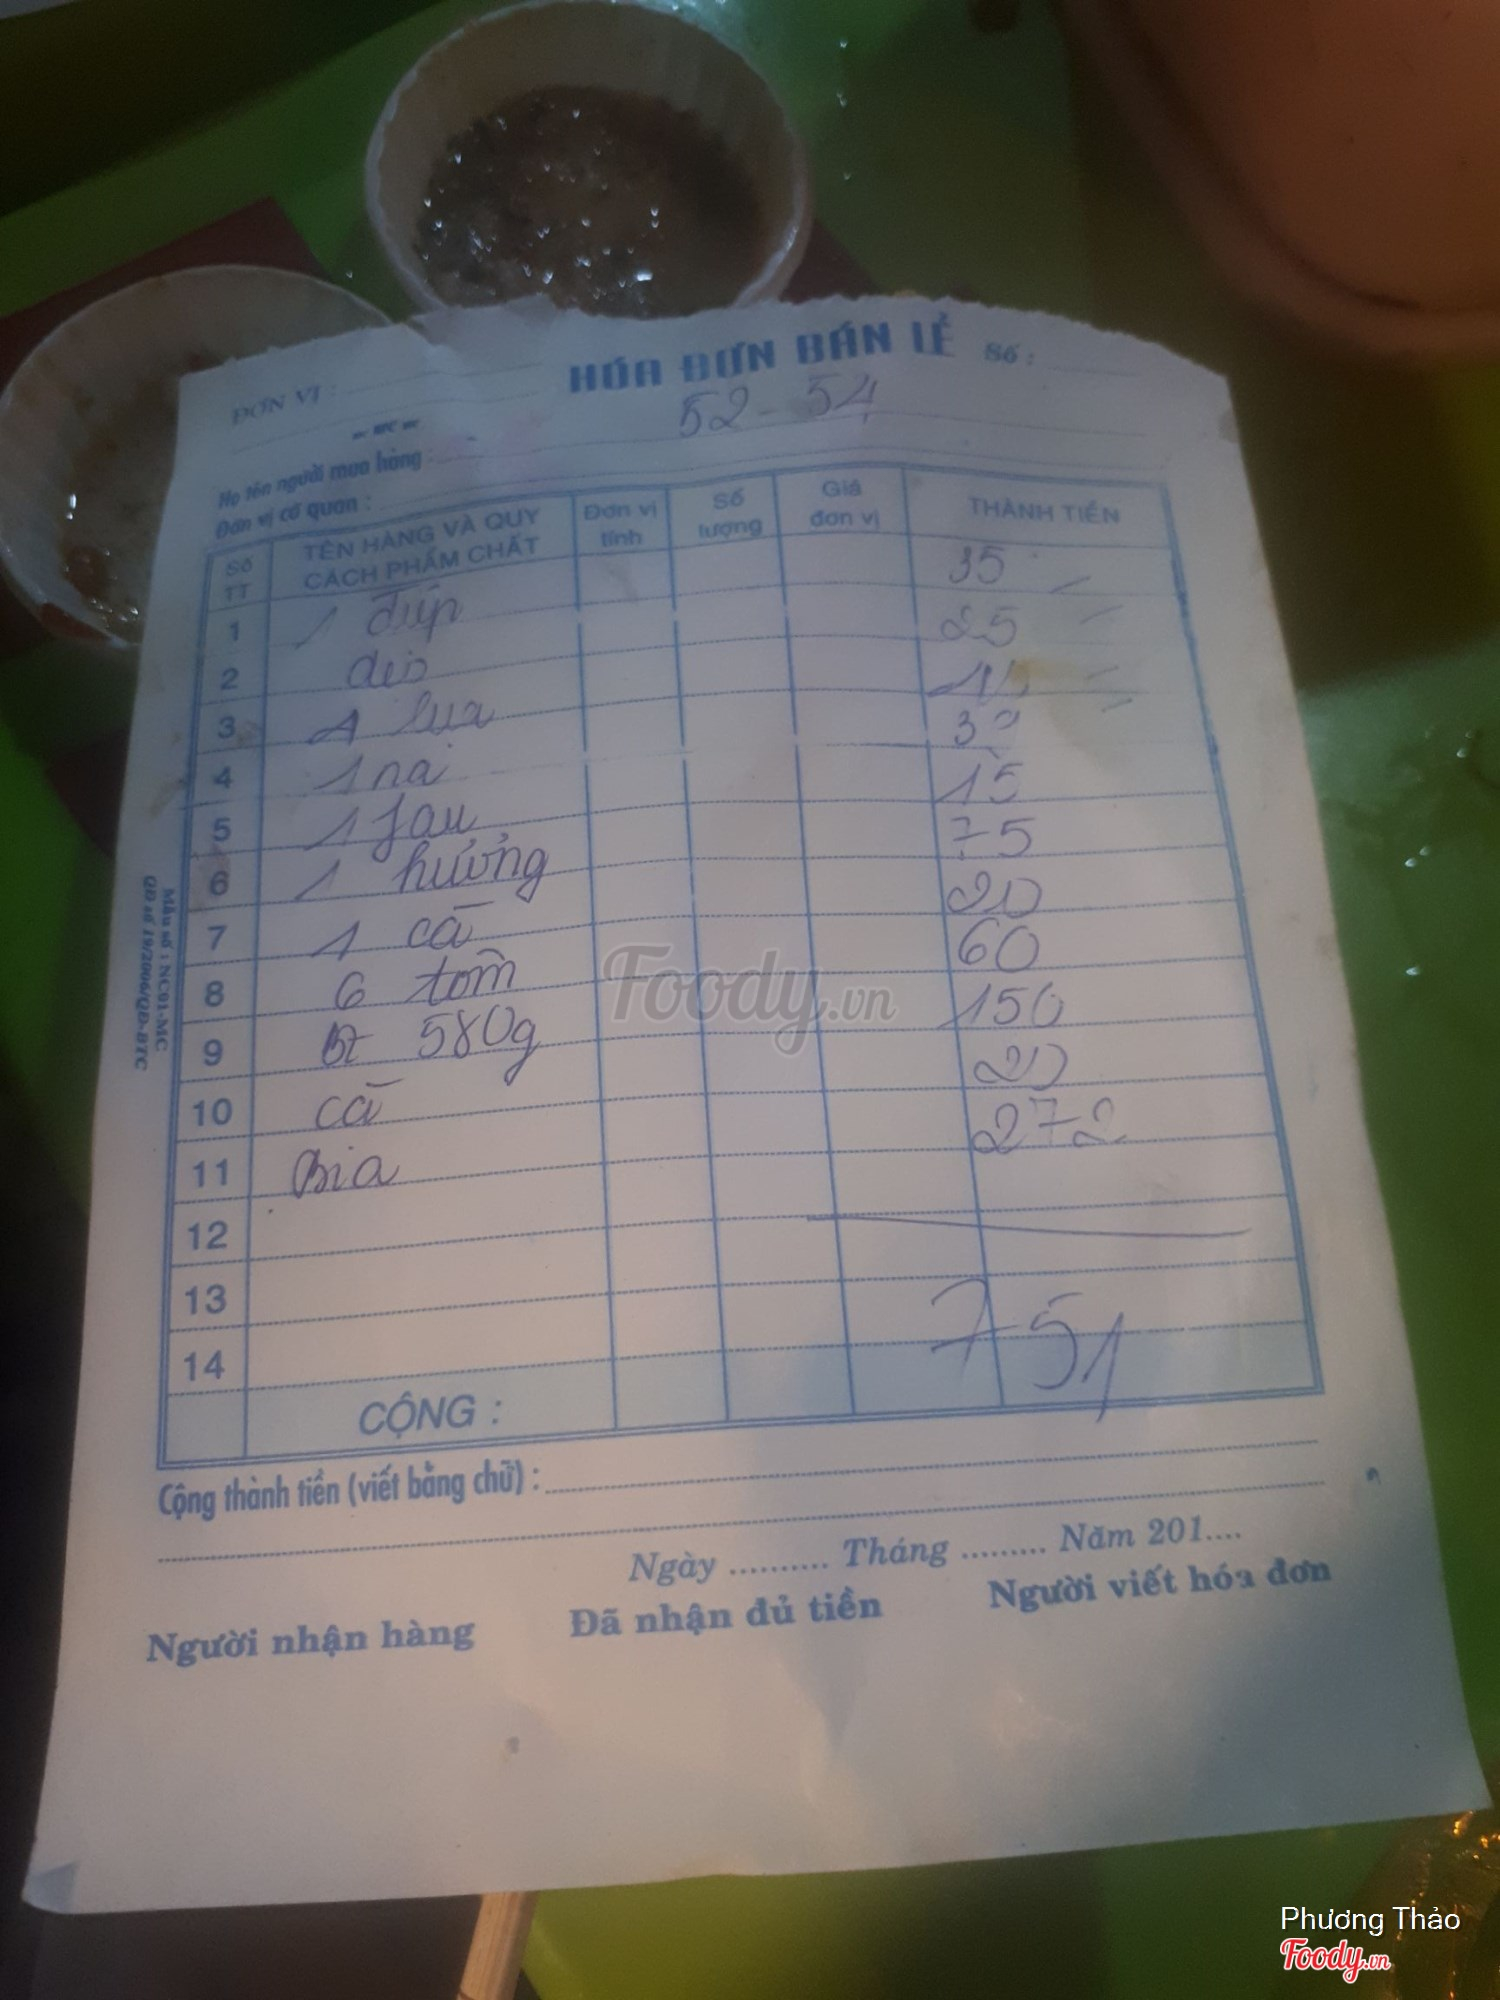 HÓA ĐƠN BÁN LẺ Số :
ĐƠN VỊ :
52 - 54
Họ tên người mua hàng :
Đơn vị cơ quan :
Số TT TÊN HÀNG VÀ QUY CÁCH PHẨM CHẤT Đơn vị tính Số lượng Giá đơn vị THÀNH TIỀN
35
1 1 25
2
3 1 lụa
4 1 15
5 1 75
6 1 hương 20
7 1 cà 60
8 6 tôm 150
9 Bt 580g 20
10 cà 272
11 Bia
12
13
14 751
CỘNG :
Cộng thành tiền (viết bằng chữ) :
Ngày .......... Tháng ......... Năm 201....
Người nhận hàng Đã nhận đủ tiền Người viết hóa đơn
Mẫu số : NC01-MC
QĐ số 19/2006/QĐ-BTC
Foody.vn
Phương Thảo
Foody.vn